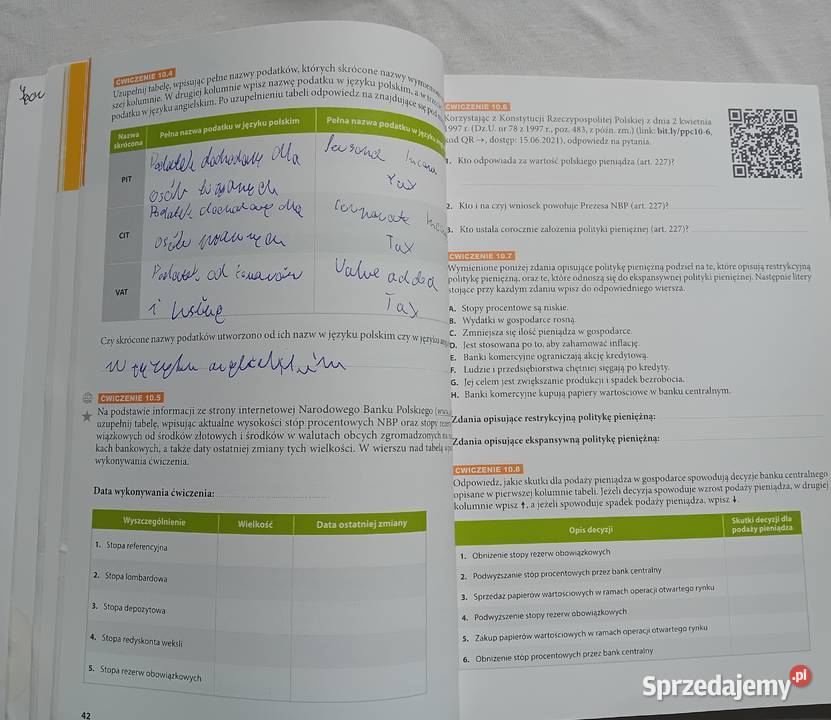 ĆWICZENIE 10.4
Uzupełnij tabelę, wpisując pełne nazwy podatków, których skrócone nazwy
szej kolumnie. W drugiej kolumnie wpisz nazwę podatku w języku polskim, a w
podatku w języku angielskim. Po uzupełnieniu tabeli odpowiedz na znajdujące się pod
Nazwa skrócona
Pełna nazwa podatku w języku polskim
Pełna nazwa podatku w języku
PIT
Podatek dochodowy dla
osób fizycznych
Personal Income
Tax
CIT
Podatek dochodowy dla
osób prawnych
corporate
Tax
VAT
Podatek od towarów
i usług
Value added
Tax
Czy skrócone nazwy podatków utworzono od ich nazw w języku polskim czy w języku
w języku angielskim
ĆWICZENIE 10.5
Na podstawie informacji ze strony internetowej Narodowego Banku Polskiego
uzupełnij tabelę, wpisując aktualne wysokości stóp procentowych NBP oraz stopy
wiązkowych od środków złotowych i środków w walutach obcych zgromadzonych na
kach bankowych, a także daty ostatniej zmiany tych wielkości. W wierszu nad tabelą
wykonywania ćwiczenia.
Data wykonywania ćwiczenia:
Wyszczególnienie
Wielkość
Data ostatniej zmiany
1. Stopa referencyjna
2. Stopa lombardowa
3. Stopa depozytowa
4. Stopa redyskonta weksli
5. Stopa rezerw obowiązkowych
42
ĆWICZENIE 10.6
Korzystając z Konstytucji Rzeczypospolitej Polskiej z dnia 2 kwietnia
1997 r. (Dz.U. nr 78 z 1997 r., poz. 483, z późn. zm.) (link: bit.ly/ppc10-6,
kod QR →, dostęp: 15.06.2021), odpowiedz na pytania.
1. Kto odpowiada za wartość polskiego pieniądza (art. 227)?
2. Kto i na czyj wniosek powołuje Prezesa NBP (art. 227)?
3. Kto ustala corocznie założenia polityki pieniężnej (art. 227)?
ĆWICZENIE 10.7
Wymienione poniżej zdania opisujące politykę pieniężną podziel na te, które opisują restrykcyjną
politykę pieniężną, oraz te, które odnoszą się do ekspansywnej polityki pieniężnej. Następnie litery
stojące przy każdym zdaniu wpisz do odpowiedniego wiersza.
A. Stopy procentowe są niskie.
B. Wydatki w gospodarce rosną.
C. Zmniejsza się ilość pieniądza w gospodarce.
D. Jest stosowana po to, aby zahamować inflację.
E. Banki komercyjne ograniczają akcję kredytową.
F. Ludzie i przedsiębiorstwa chętniej sięgają po kredyty.
G. Jej celem jest zwiększanie produkcji i spadek bezrobocia.
H. Banki komercyjne kupują papiery wartościowe w banku centralnym.
Zdania opisujące restrykcyjną politykę pieniężną:
Zdania opisujące ekspansywną politykę pieniężną:
ĆWICZENIE 10.8
Odpowiedz, jakie skutki dla podaży pieniądza w gospodarce spowodują decyzje banku centralnego
opisane w pierwszej kolumnie tabeli. Jeżeli decyzja spowoduje wzrost podaży pieniądza, w drugiej
kolumnie wpisz ↑, a jeżeli spowoduje spadek podaży pieniądza, wpisz ↓.
Opis decyzji
Skutki decyzji dla podaży pieniądza
1. Obniżenie stopy rezerw obowiązkowych
2. Podwyższanie stóp procentowych przez bank centralny
3. Sprzedaż papierów wartościowych w ramach operacji otwartego rynku
4. Podwyższenie stopy rezerw obowiązkowych
5. Zakup papierów wartościowych w ramach operacji otwartego rynku
6. Obniżenie stóp procentowych przez bank centralny
Sprzedajemy.pl